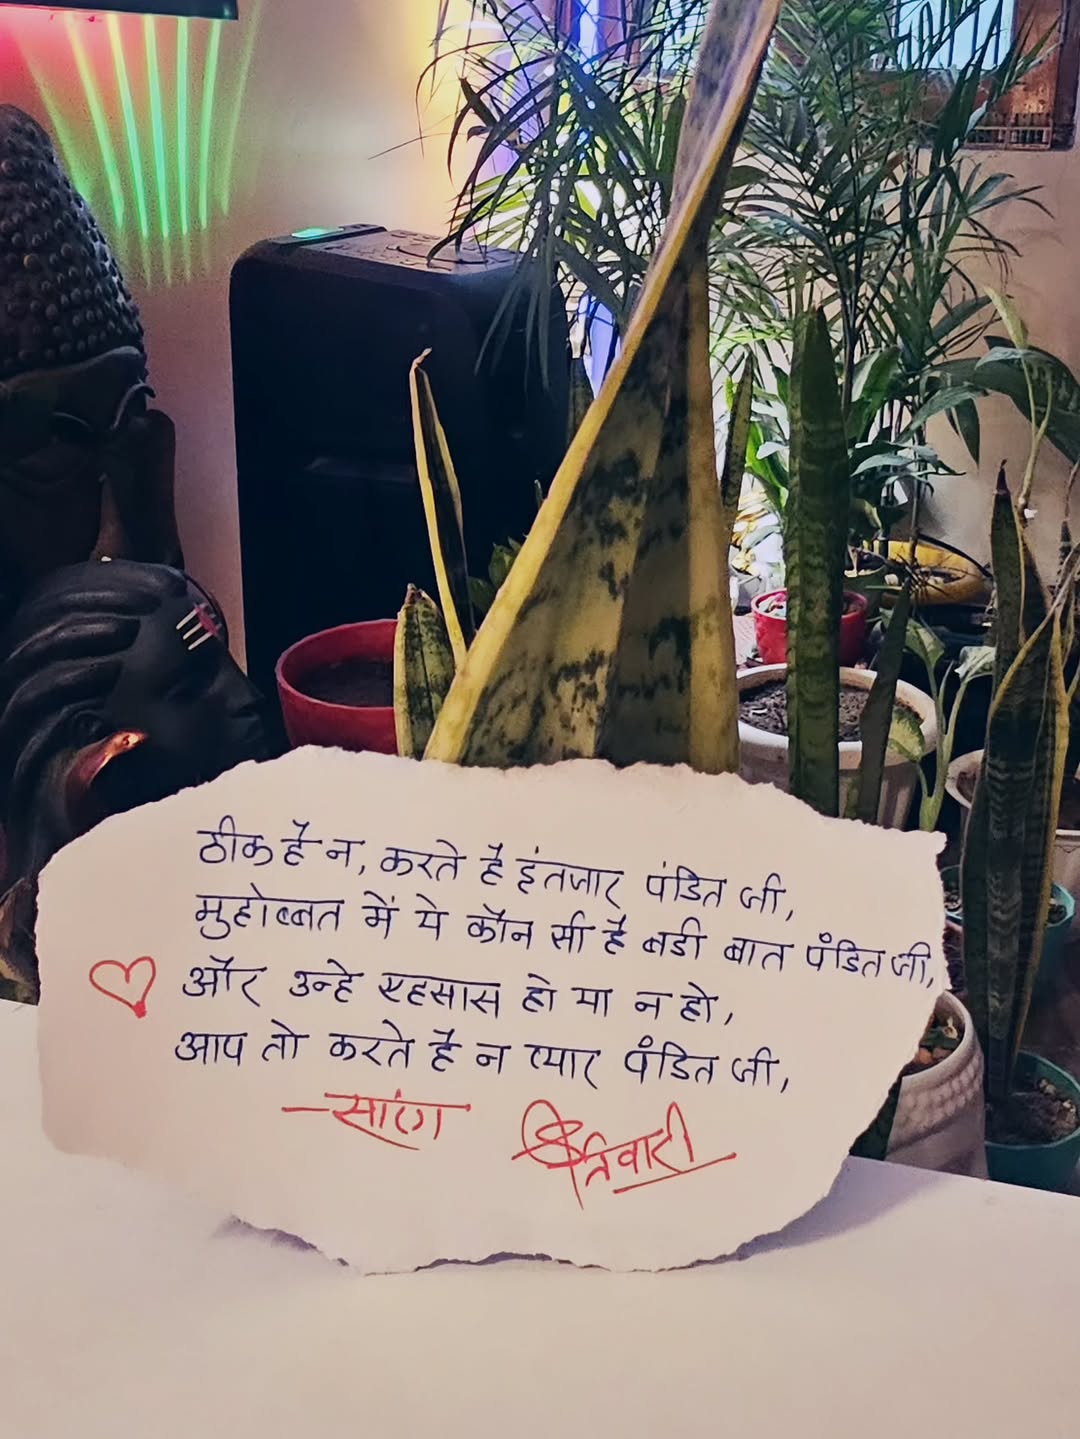 ठीक है न, करते है इंतजार पंडित जी,
मुहोब्बत में ये कौन सी है बडी बात पंडित जी,
और उन्हे एहसास हो या न हो,
आप तो करते है न प्यार पंडित जी,
त्रिवारी